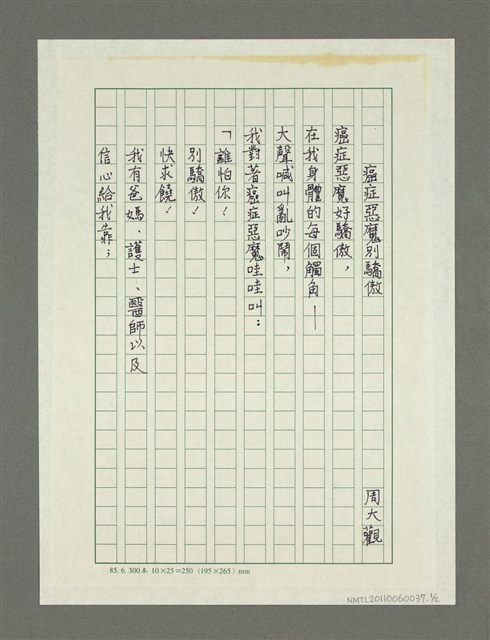 癌症惡魔別驕傲
周大觀
癌症惡魔好驕傲，
在我身體的每個觸角——
大聲喊叫亂吵鬧，
我對著癌症惡魔哇哇叫：
「誰怕你！
別驕傲！
快求饒！
我有爸媽、護士、醫師以及
信心給我靠；
83. 6. 300本 10×25=250 (195×265) mm
NMTL20110060037.½